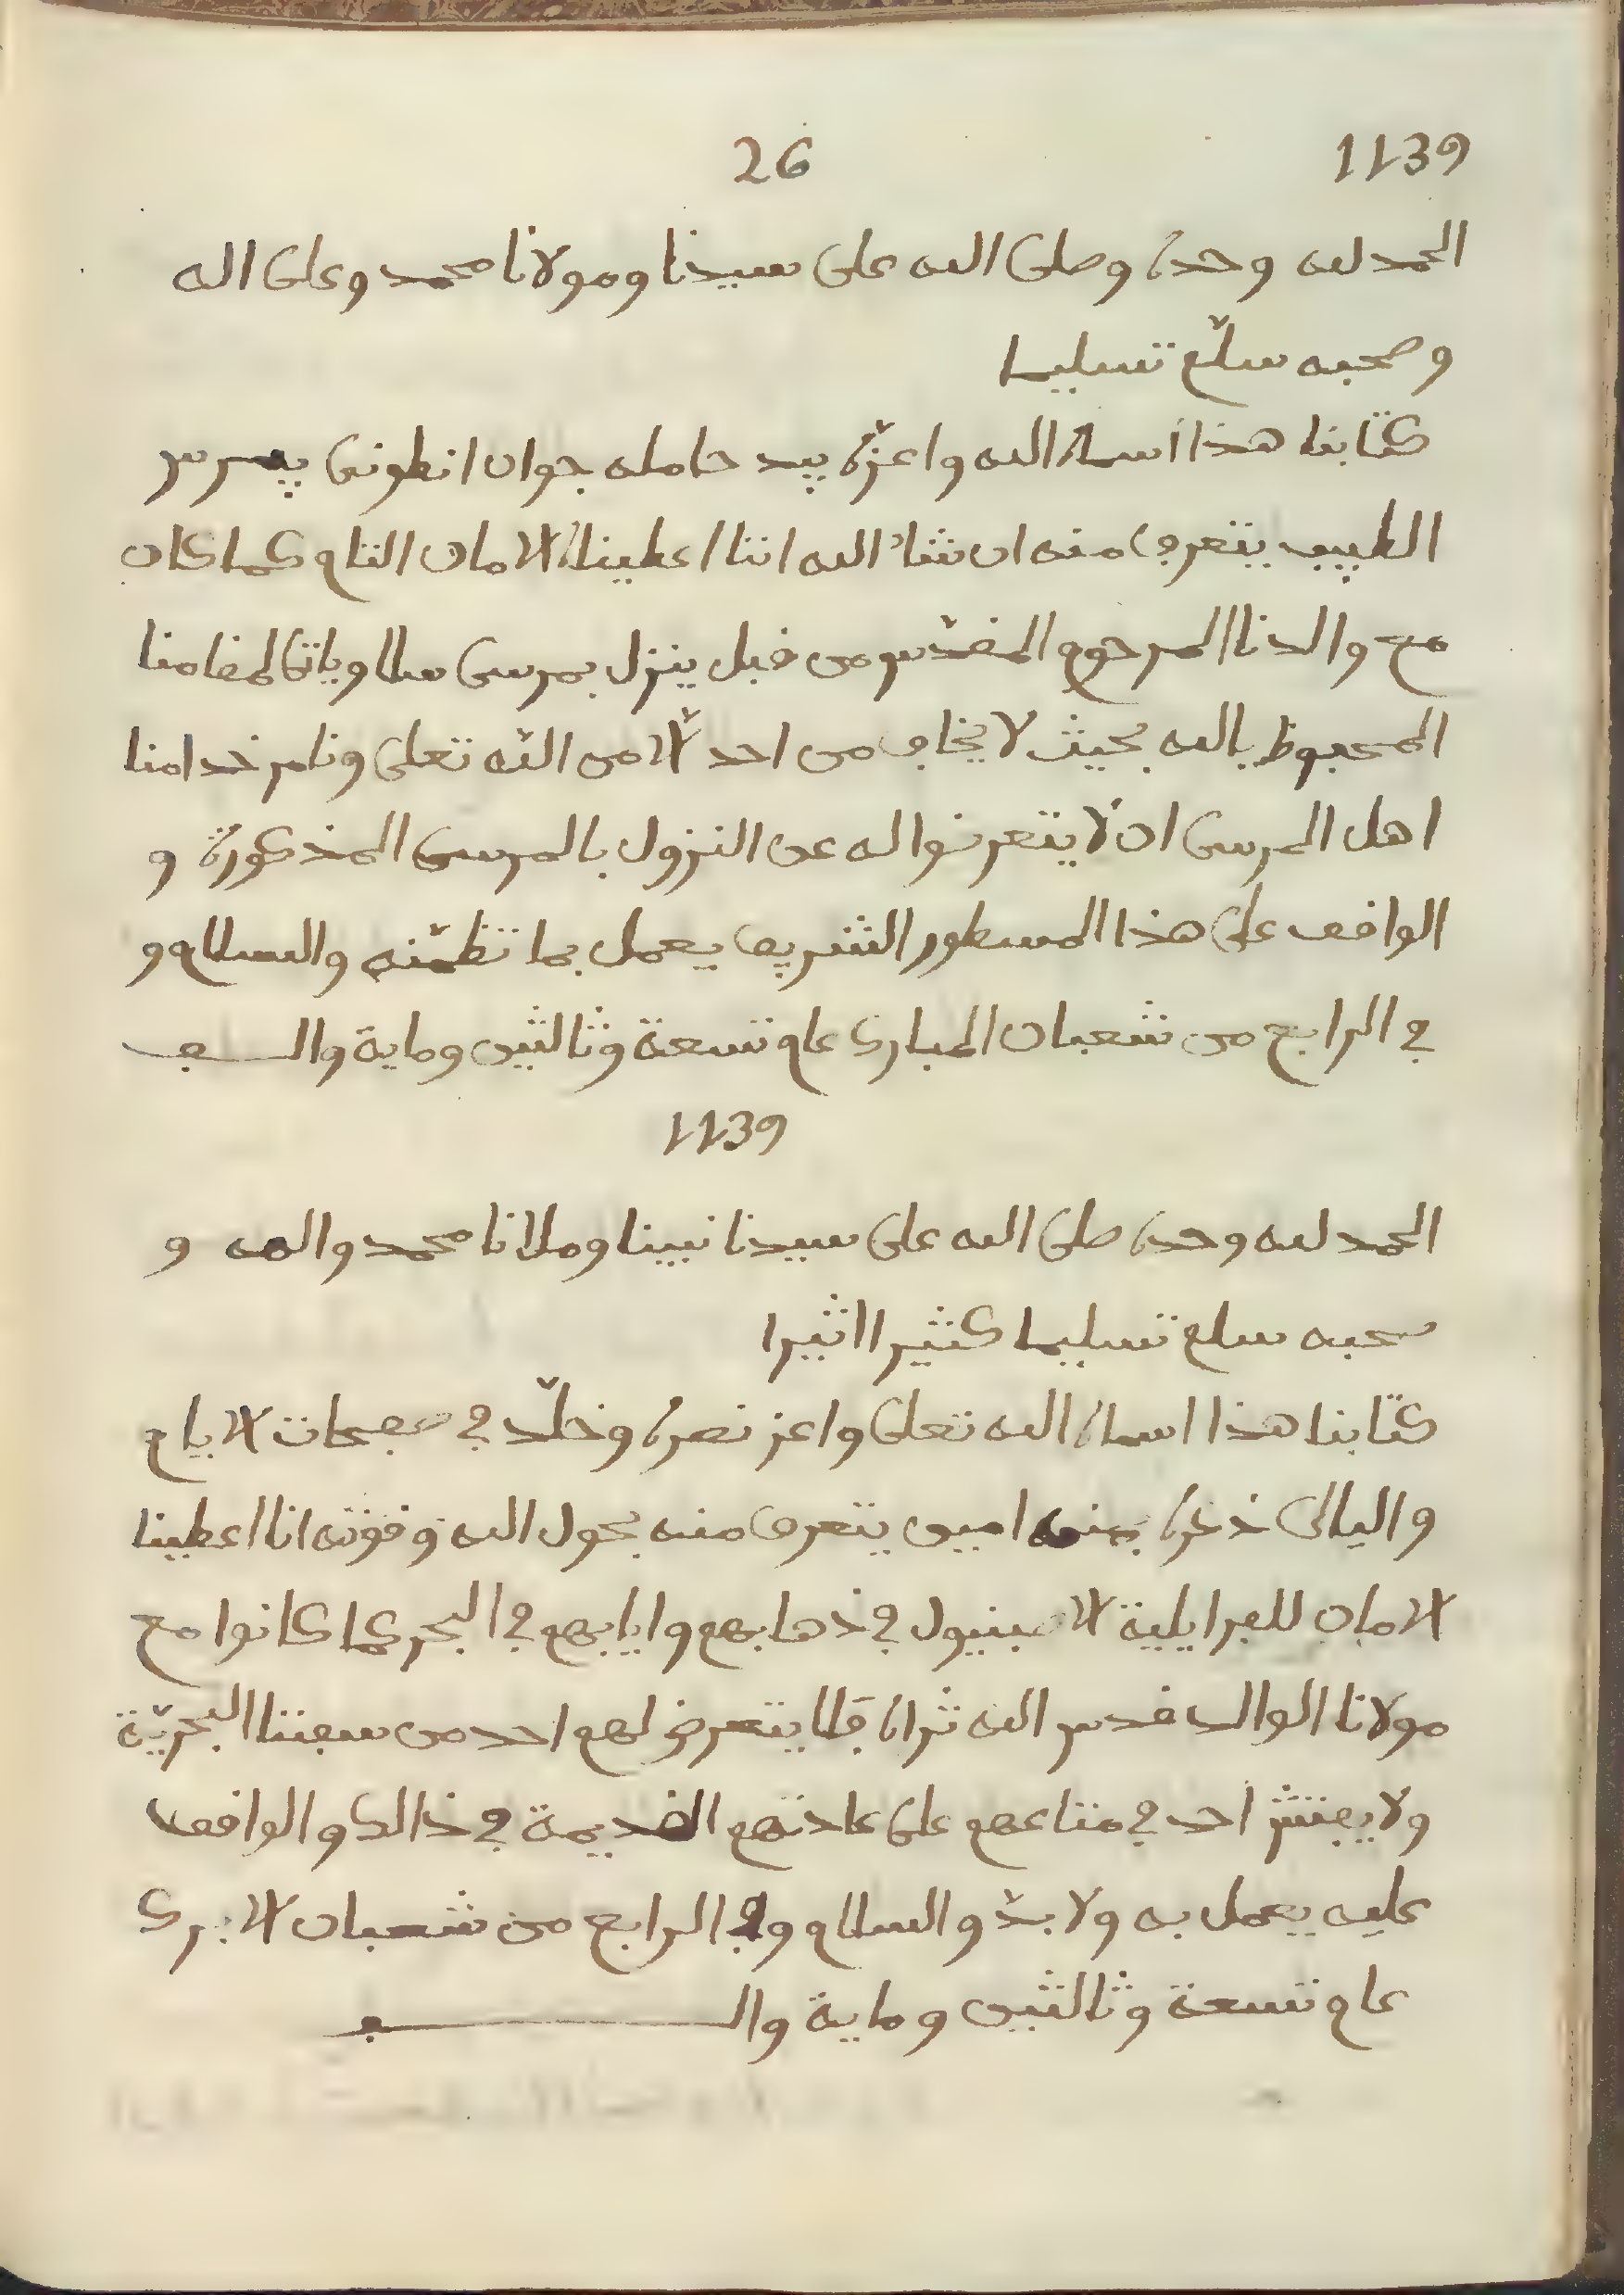 26 1139
الحمد لله وحده وصلى الله على سيدنا ومولانا محمد وعلى اله
وصحبه سلّم تسليما
كتابنا هذا اسماه الله واعزّه بيد حامله جوان انطونى پيرس
الطبيب يتعرف منه ان شاء الله اننا اعطيناه الامان التام كما كان
مع والدنا المرحوم المقدّس من قبل ينزل بمرسى سلا وياتى لمقامنا
المحفوظ بالله بحيث لا يخاف من احد الّا من اللّه تعلى ونامر خدامنا
اهل المرسى ان لا يتعرضوا له عن النزول بالمرسى المذكورة و
الواقف على هذا المسطور الشريف يعمل بما تظمّنه والسلام و
في الرابع من شعبان المبارك عام تسعة وثالثين وماية والف
1139
الحمد لله وحده صلى الله على سيدنا نبينا وملانا محمد واله و
صحبه سلم تسليما كثيرا اثيرا
كتابنا هذا اسماه الله تعلى واعز نصره وخلّد في صفحات الايام
واليالى ذكره بمنه امين يتعرف منه بحول الله وقوّته انا اعطينا
الامان للفرايلية الاصبنيول في ذهابهم وايابهم في البحر كما كانوا مع
مولانا الوالد قدس الله ثراه فلا يتعرض لهم احد من سفننا البحريّة
ولا يفتش احد في متاعهم على عادتهم القديمة في ذالك والواقف
عليه يعمل به ولا بدّ والسلام وفي الرابع من شعبان الابرك
عام تسعة وثالثين وماية والف